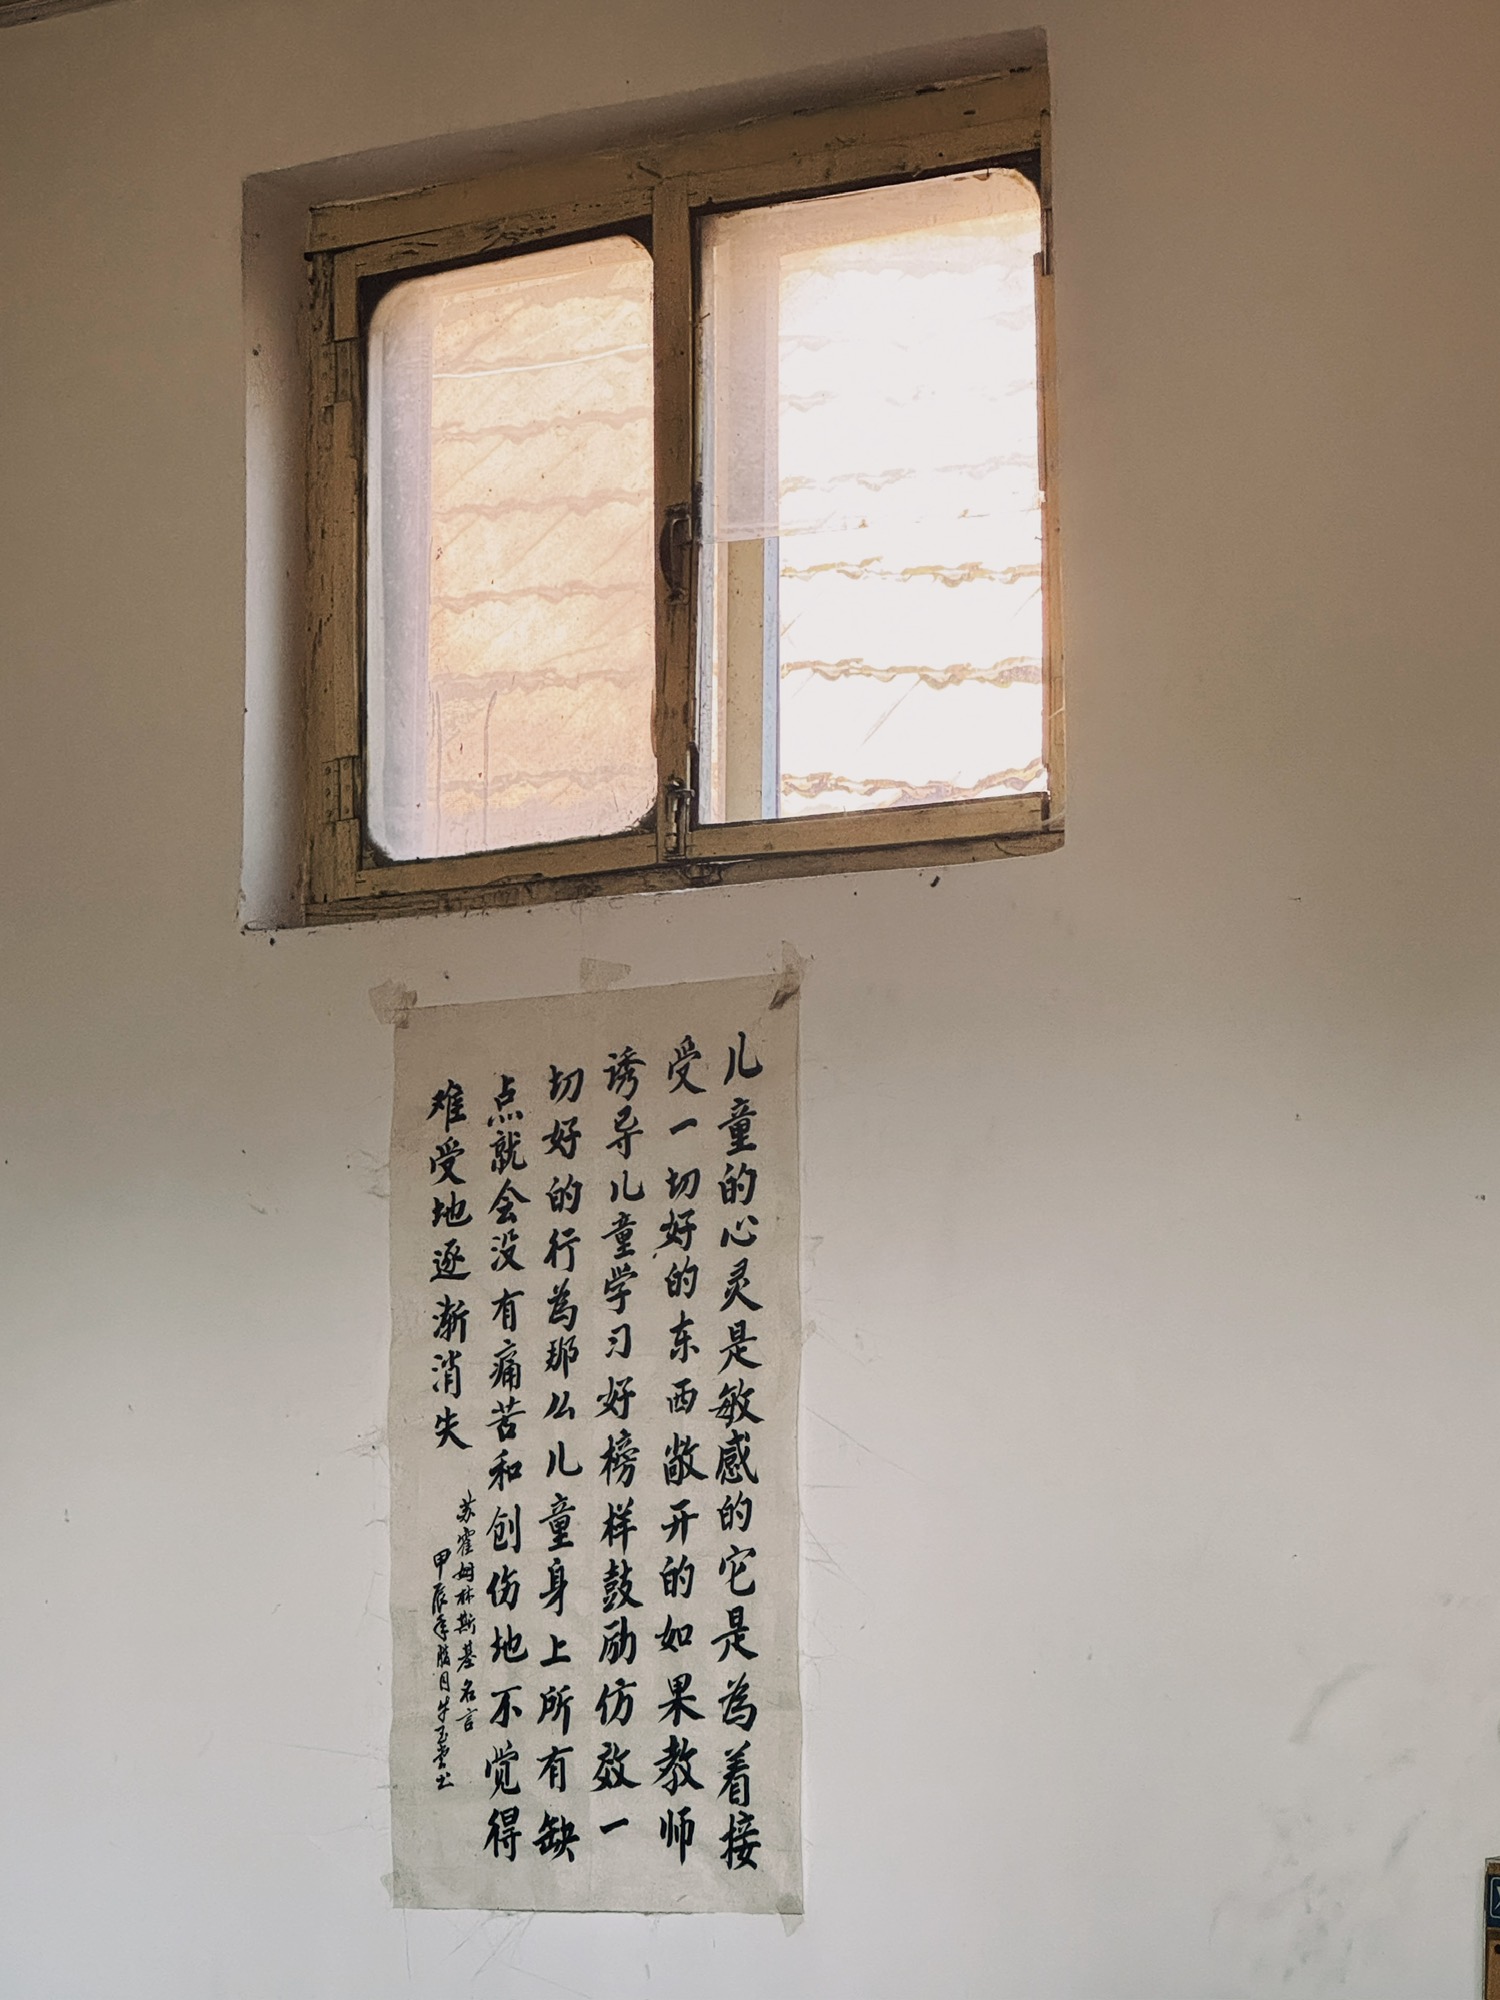 儿童的心灵是敏感的它是為着接
受一切好的东西敞开的如果教师
诱导儿童学习好榜样鼓励仿效一
切好的行為那么儿童身上所有缺
点就会没有痛苦和创伤地不觉得
难受地逐渐消失
苏霍姆林斯基名言
甲辰年腊月牛玉雲书